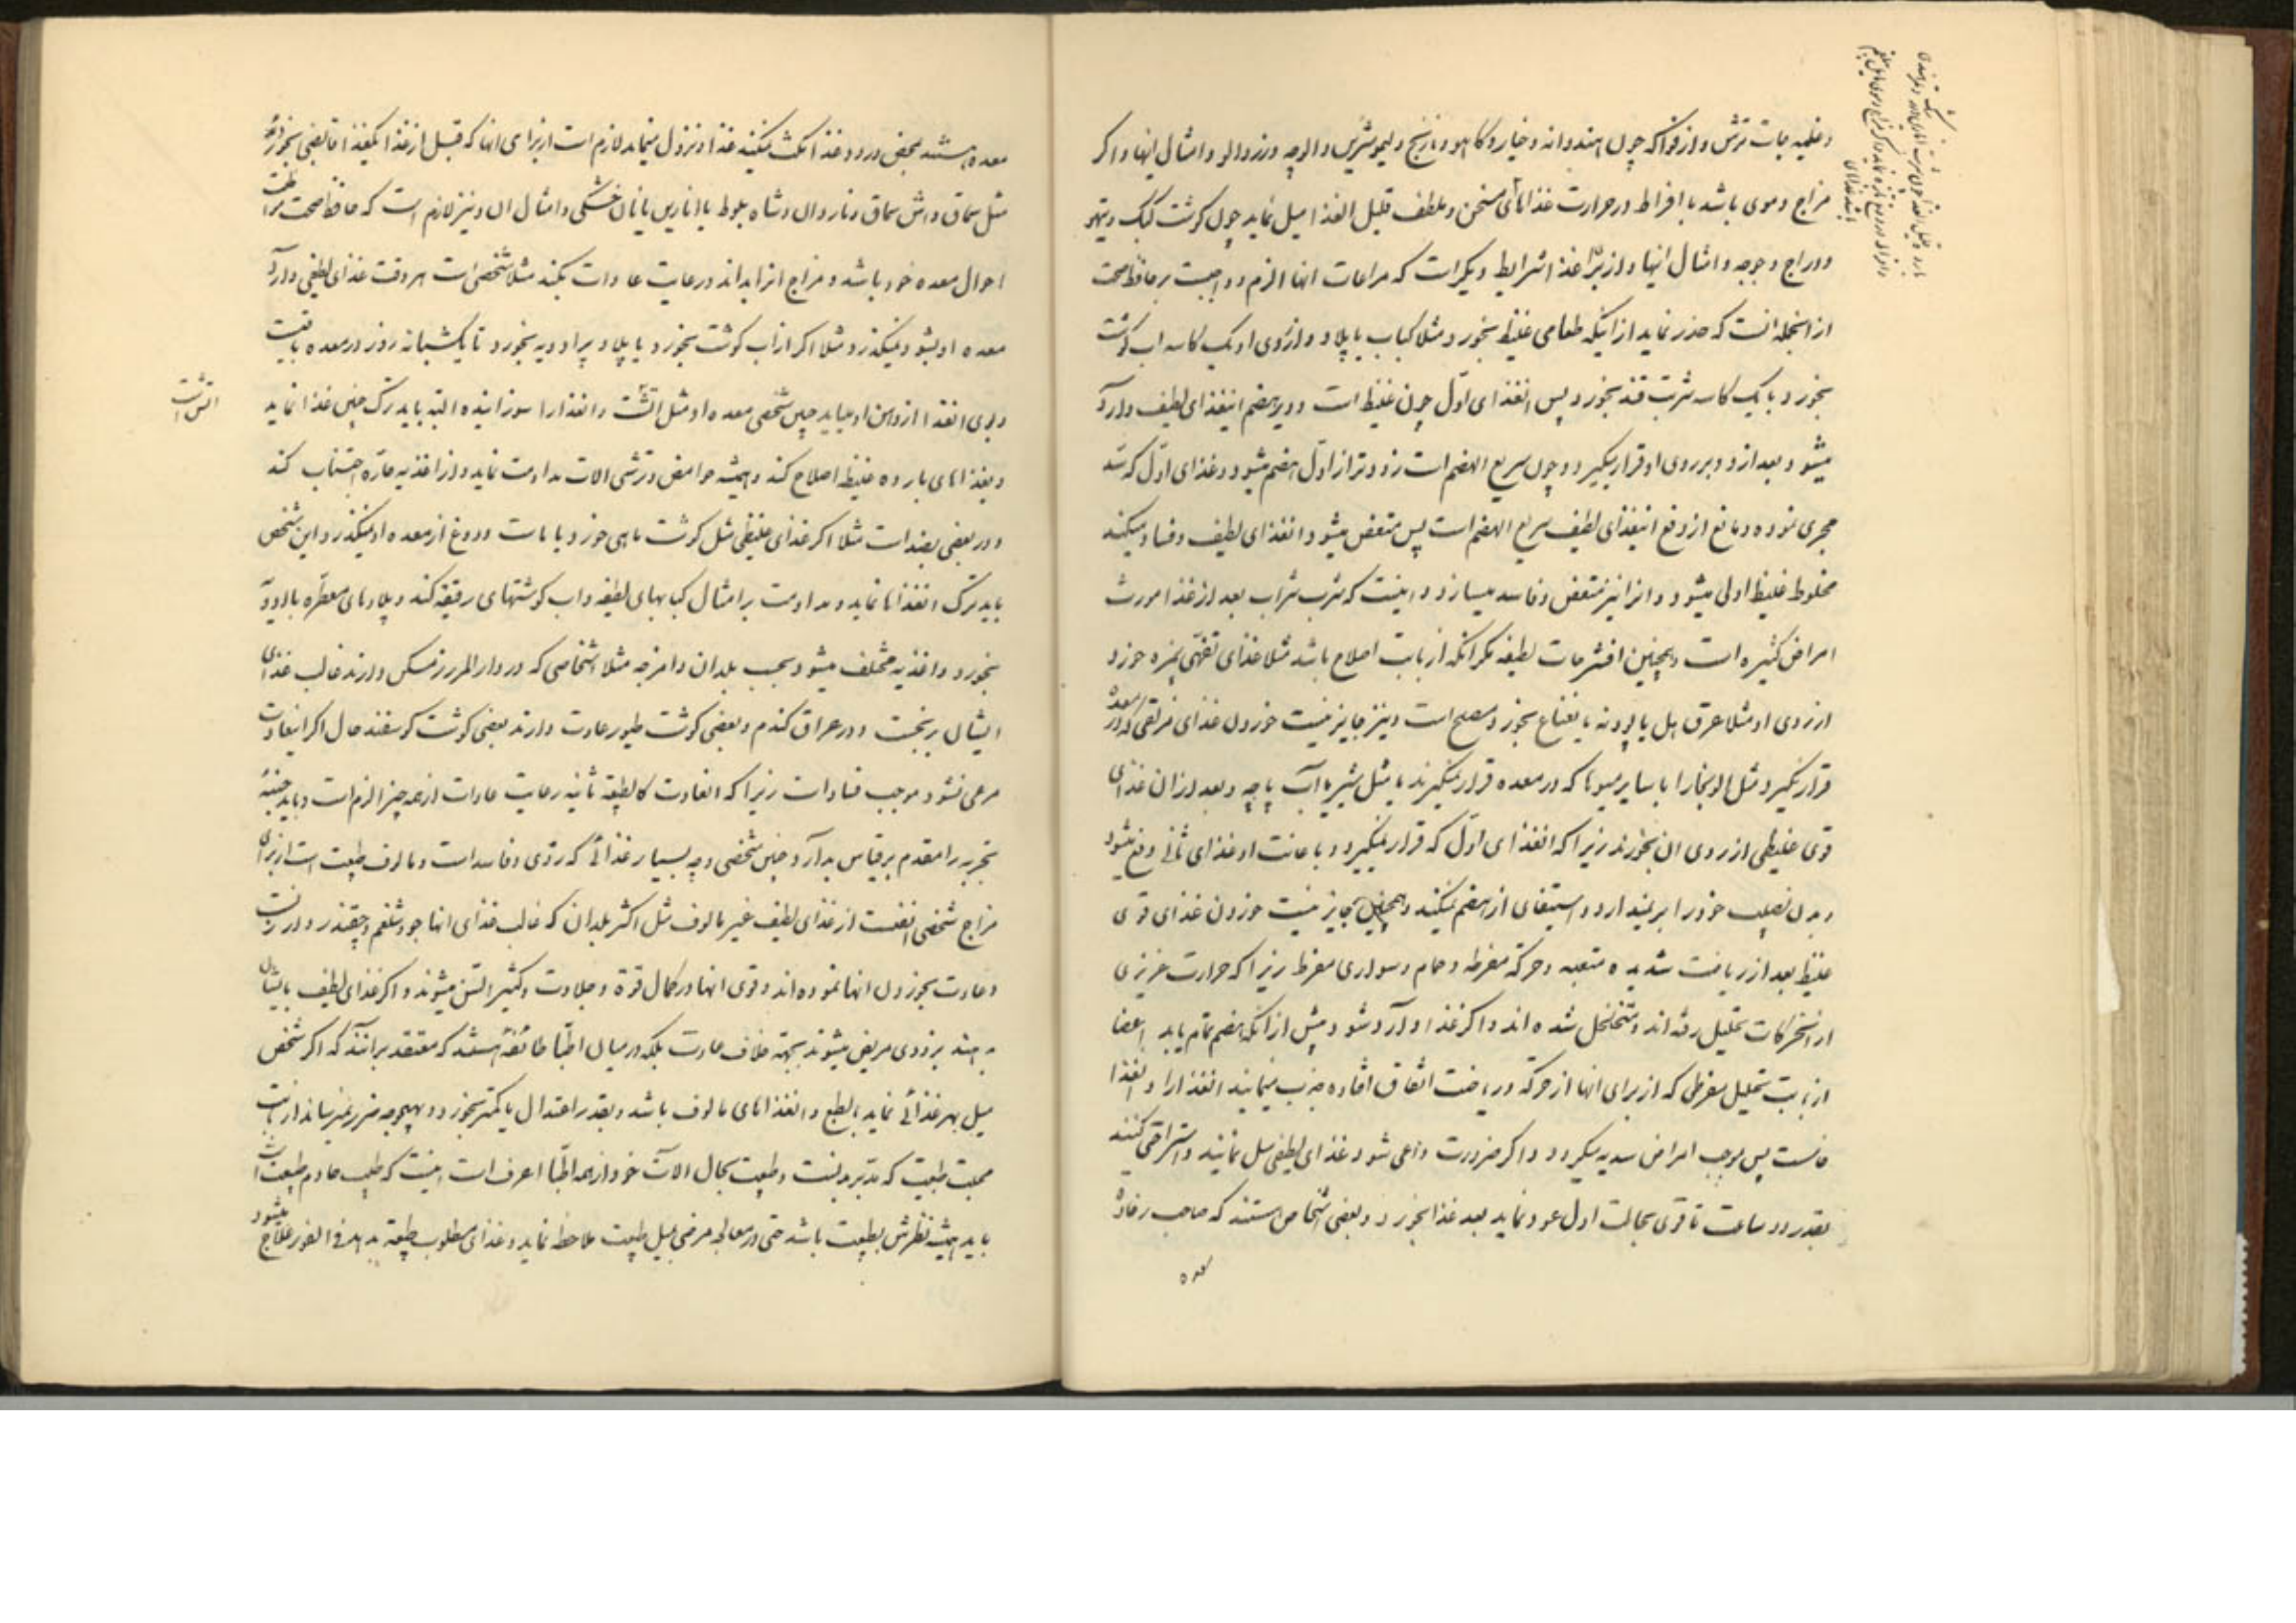 و قلیه جات ترش و از فواکه چون هندوانه و خیار و کاهو و نارنج و لیمو شیرین و الوچه و زردالو و امثال اینها و اکر
مزاج دموی باشد با افراط در حرارت غذاهای مسخن و ملطف قلیل الغذا میل نماید چون کوشت کبک و تیهو
و دراج و جوجه و امثال اینها و از برای غذا شرایط دیکر است که مراعات انها الزم و واجبست بر حافظ صحت
از انجمله انست که حذر نماید از اینکه طعامی غلیظ بخورد مثلا کباب یا پلاو و از روی او یک کاسه اب کوشت
بخورد یا یک کاسه شربت قند بخورد پس انغذای اول چون غلیظ است و دیر هضم اینغذای لطیف وارد
میشود بعد از و و بر روی او قرار میکیرد و چون سریع الهضم است زودتر از اول هضم میشود و غذای اول که سد
مجری نموده و مانع از دفع اینغذای لطیف سریع الهضم است پس متعفن میشود انغذای لطیف و فساد میکند
مخلوط غلیظ اولی میشود و انرا نیز متعفن و فاسد میسازد و اینست که شرب شراب بعد از غذا مورث
امراض کثیره است و همچنین افشرجات لطیفه مکر انکه از بابت اصلاح باشد مثلا غذای تفهی بمزه خورد
از روی او مثلا عرق هل یا پودنه یا نعناع بخورد مصلح است و نیز جایز نیست خوردن غذای مزلقی که در معده
قرار نکیرد مثل الوبخارا یا سایر میوها که در معده قرار نمیکیرند یا مثل شیر یا آب پاچه و بعد از ان غذای
قوی غلیظی از روی ان بخورند زیرا که انغذای اول که قرار نمیکیرد و باعانت او غذای ثانی دفع میشود
و بدن نصیب خود را بر نمیدارد و استیفای از هضم نمیکند و همچنین جایز نیست خوردن غذای قوی
غلیظ بعد از ریاضت شدیده متعبه و حرکه مفرطه و حمام و سواری مفرط زیرا که حرارت غریزی
از انحرکات تحلیل رفته‌اند و متخلخل شده‌اند و اکر غذا وارد شود پیش از انکه هضم تمام یابد اعضا
از بابت تحلیل مفرطی که از برای انها از حرکه و ریاضت اتفاق افتاده جذب مینمایند انغذا را و انغذا
خامست پس موجب امراض سدیه میکردد و اکر ضرورت داعی شود غذای لطیفی میل نمایند و استراحتی کنند
بقدر دو ساعت تا قوی بحالت اول عود نماید بعد غذا بخورند و بعضی اشخاص هستند که صاحب رخاوة
معده
معده هستند بمحض ورود غذا مکث نمیکند غذا و نزول مینماید لازم است از برای انها که قبل از غذا یکغذا قابضی بخورند
مثل سماق و اش سماق و ناردان و شاه بلوط یا انارین یا نان خشکی و امثال ان و نیز لازم است که حافظ صحت مراقب
احوال معده خود باشد و مزاج انرا بداند و رعایت عادات بکند مثلا شخصی است هر وقت غذای لطیفی وارد
معده او بشود میکندد و مثلا اکر از اب کوشت بخورد یا پلاو پر ادویه بخورد تا یکشبانه روز در معده باقیست
و بوی انغذا از دهن او میاید چنین شخصی معده او مثل اتش است و انغذا را سوزاینده البته باید ترک چنین غذا نماید
اتش است
و بغذاهای بارده غلیظ اصلاح کند و همیشه حوامض و ترشی الات مداومت نماید و از اغذیه حاره اجتناب کند
و در بعضی بضد است مثلا اکر غذای غلیظی مثل کوشت ماهی خورد یا ماست و دوغ از معده او نمیکذرد این شخص
باید ترک انغذاها نماید و مداومت بر امثال کبابهای لطیفه و اب کوشتهای رقیقه کند و پلاوهای معطره باادویه
بخورد و اغذیه مختلف میشود بحسب بلدان و امزجه مثلا اشخاصی که در دار المرز مسکن دارند غالب غذای
ایشان برنجست و در عراق کندم و بعضی کوشت طیور عادت دارند بعضی کوشت کوسفند حال اکر اینعادت
مرعی نشود موجب فساد است زیرا که العادت کالطبیعة ثانیه رعایت عادات از همه چیز الزم است و باید جنبهٔ
تجربه را مقدم بر قیاس بدارد چنین شخصی و چه بسیار غذائی که ردی و فاسد است و مالوف طبیعت است از برای
مزاج شخصی انفعست از غذای لطیف غیر مالوف مثل اکثر بلدان که غالب غذای انها جو و شلغم و چقندر و ذرتست
و عادت بخوردن انها نموده‌اند و قوی انها در کمال قوة و جلادت و کثیر السن میشوند و اکر غذای لطیف بایشان
بدهند بزودی مریض میشوند بجهة خلاف عادت بلکه در میان اطبا طائفهٔ هستند که معتقد برانند که اکر شخص
میل بهر غذائی نماید بالطبع و انغذاهای مالوف باشد و بقدر اعتدال یا کمتر بخورد و بهیچوجه ضرر نمیرساند از بابت
محبت طبیعت که مدبر بدنست و طبیعت بحال الات خود از همه اطبا اعرف است اینست که طبیب خادم طبیعت است
باید همیشه نظرش بطبیعت باشد حتی در معالجه مرضی میل طبیعت ملاحظه نماید و غذای مطلوب طبیعة بدهد فی الفور علاج میشود